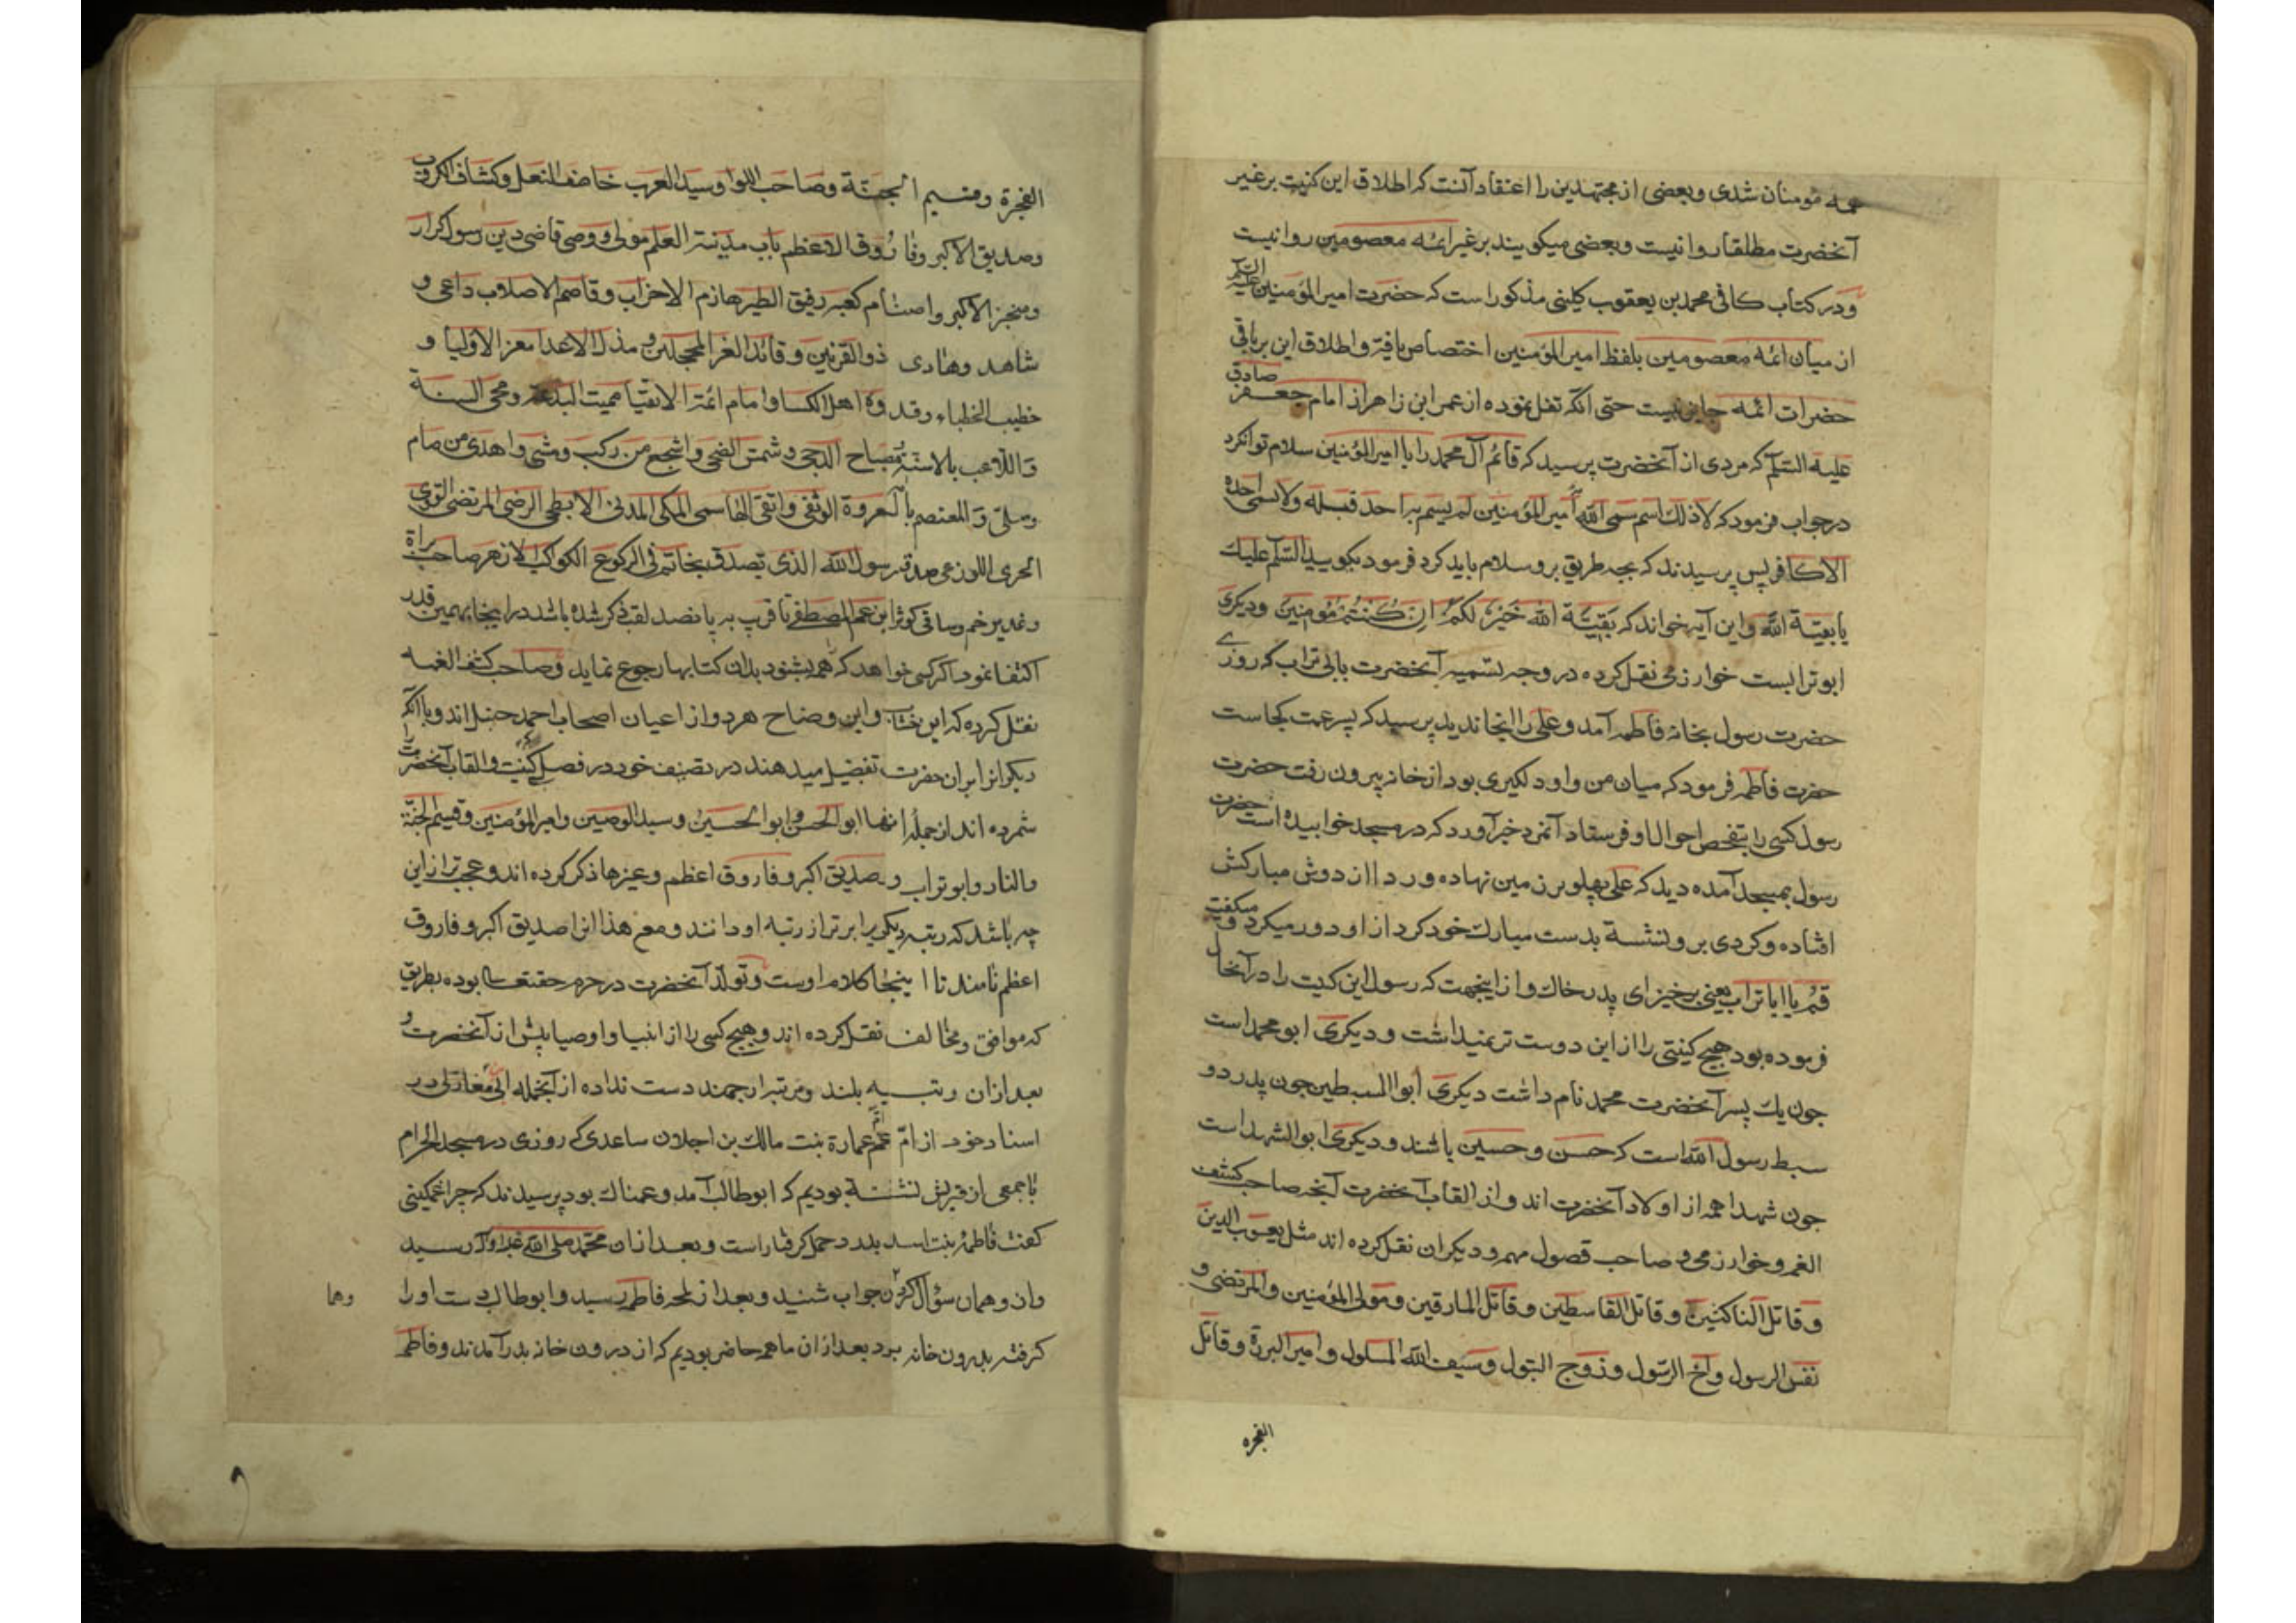 همه مؤمنان شدی و بعضی از مجتهدین را اعتقاد آنست که اطلاق این کنیت بر غیر
آنحضرت مطلقا روا نیست و بعضی میکویند بر غیر ائمه معصومین روا نیست
و در کتاب کافی محمد بن یعقوب کلینی مذکور است که حضرت امیر المؤمنین علیه السلم
از میان ائمه معصومین بلفظ امیر المؤمنین اختصاص یافته و اطلاق این بر باقی
حضرات ائمه جایز نیست حتی آنکه نقل نموده از عمر ابن زاهر از امام جعفر صادق
علیه السلم که مردی از آنحضرت پرسید که قائم آل محمد را با امیر المؤمنین سلام توان کرد
در جواب فرمود که لا ذلک اسم سمی الله امیر المؤمنین لم یسم به احد قبله ولا یسمی احد بعده
الا کافر پس پرسیدند که بچه طریق برو سلام باید کرد فرمود بکویید السلم علیک
یا بقیة الله و این آیه خواند که بقیة الله خیر لکم ان کنتم مؤمنین و دیکری
ابو ترابست خوارزمی نقل کرده در وجه تسمیه آنحضرت بابی تراب که روزی
حضرت رسول بخانه فاطمه آمد و علی را انجا ندید پرسید که پسر عمت کجاست
حضرت فاطمه فرمود که میان من و او دلکیری بود از خانه بیرون رفت حضرت
رسول کسی را بتفحص احوال او فرستاد آنمرد خبر آورد که در مسجد خوابیده است حضرت
رسول بمسجد آمده دید که علی پهلو بر زمین نهاده و ردا از دوش مبارکش
افتاده و کردی برو نشسته بدست مبارک خود کرد از او دور میکرد و میکفت
قم یا ابا تراب یعنی برخیز ای پدر خاک و از اینجهت که رسول این کنیت را در آنحال
فرموده بود هیچ کنیتی را از این دوست تر نمیداشت و دیکری ابو محمد است
جون یک پسر آنحضرت محمد نام داشت دیکری ابوا السبطین جون پدر دو
سبط رسول الله است که حسن و حسین باشند و دیکری ابو الشهدا است
جون شهدا همه از اولاد آنحضرت اند و از القاب آنحضرت آنچه صاحب کشف
الغمه و خوارزمی و صاحب فصول مهمه و دیکران نقل کرده اند مثل یعسوب الدین
و قاتل الناکثین و قاتل القاسطین و قاتل المارقین و مولی المؤمنین و المرتضی و
نفس الرسول و اخ الرسول و زوج البتول و سیف الله المسلول و امیر البررة و قاتل
الفجره
الفجرة و قسیم الجنة و صاحب اللوا و سید العرب خاصف النعل و کشاف الکروب
و صدیق الاکبر و فاروق الاعظم باب مدینة العلم مولی و وصی قاضی دین رسول کرار
شاهد و هادی ذو القرنین و قائد الغر المحجلین و مذل الاعدا معز الاولیا و
خطیب الخطباء و قدوة اهل الکسا و امام ائمة الاتقیا ممیت البدعة و محی السنة
و اللاعب بالاسنة مصباح الدجی و شمس الضحی و اشجع من رکب و مشی و اهدی من صام
و صلی و المعتصم بالعروة الوثقی و اتقی الهاشمی المکی المدنی الابطحی الرضی المرتضی القوی
رسول الله الذی تصدق بخاتمه فی الرکوع الکوکب الازهر صاحب براة
و غدیر خم و ساقی کوثر ابن عم المصطفی تا قریب به پانصد لقب ذکر شده باشد در اینجا بهمین قدر
اکتفا نمود اکر کسی خواهد که همه بشنود بدان کتابها رجوع نماید و صاحب کشف الغمه
نقل کرده که ابن خشاب و ابن وضاح هر دو از اعیان اصحاب احمد حنبل اند و با آنکه
دیکر انرا بر آن حضرت تفضیل میدهند در تصنیف خود در فصل کنیت و القاب آنحضرت
شمرده اند از جمله انها ابو الحسن و ابو الحسین و سید الوصیین و امیر المؤمنین و قسیم الجنة
والنار و ابو تراب و صدیق اکبر و فاروق اعظم و غیرها ذکر کرده اند و عجب تر از این
چه باشد که رتبه دیکریرا برتر از رتبه او دانند و مع هذا انرا صدیق اکبر و فاروق
اعظم نامند تا اینجا کلام اوست و تولد آنحضرت در حرم حقتعالی بوده بطریق
که موافق و مخالف نقل کرده اند و هیچ کسی را از انبیا و اوصیا پیش از آنحضرت و
بعد از ان رتبه بلند و مرتبه ارجمند دست نداده از آنجمله ابن مغازلی در
اسناد خود از ام عمارة بنت مالک بن اجلان ساعدی که روزی در مسجد الحرام
با جمعی از قریش نشسته بودیم که ابوطالب آمد و غمناک بود پرسیدند که چرا غمکینی
کفت فاطمه بنت اسد بدرد حمل کرفتار است و بعد از ان محمد صلی الله علیه و آله رسید
وان و همان سؤال کردن جواب شنید و بعد از لمحه فاطمه رسید و ابوطالب دست او را
وهما
کرفته بدرون خانه برد بعد از ان ما همه حاضر بودیم که از درون خانه بدر آمدند و فاطمه